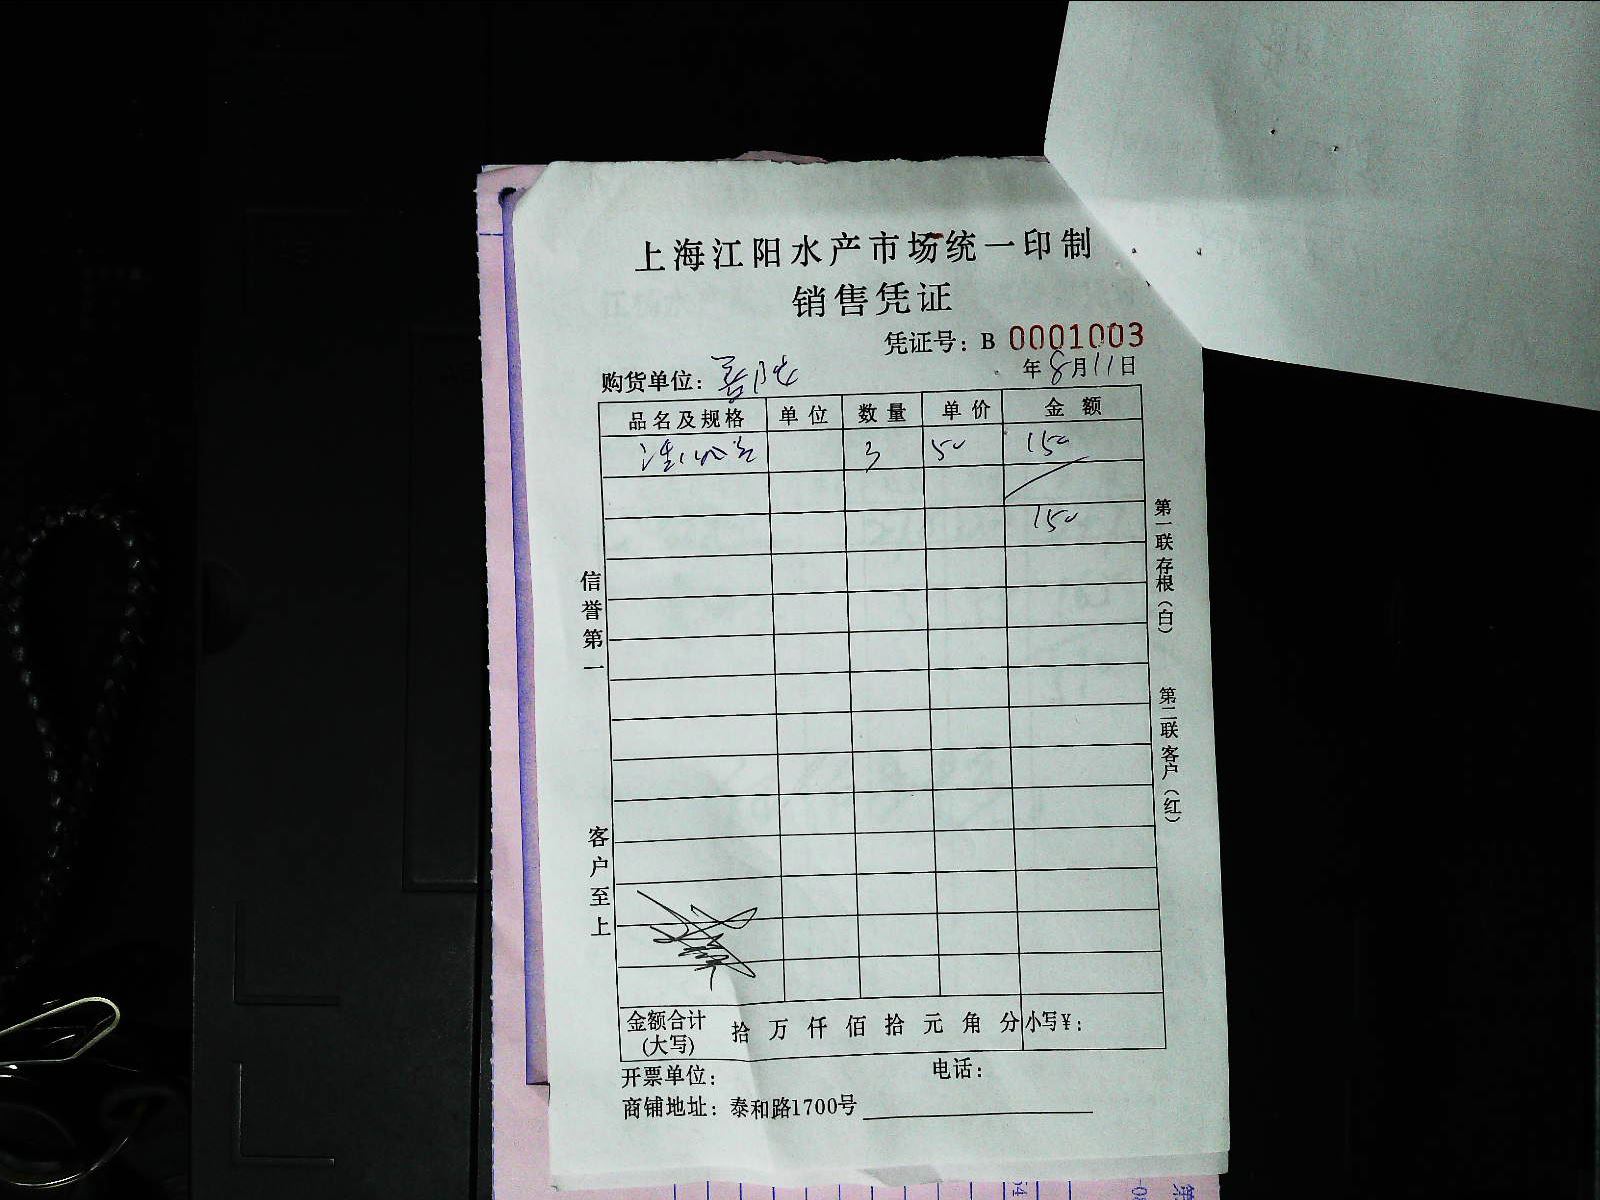 上海江阳水产市场统一印制
销售凭证
凭证号：B 0001003
购货单位： 年8月11日
品名及规格 单位 数量 单价 金额
3 50 150
150
信誉第一
客户至上
第一联存根（白）
第二联客户（红）
金额合计(大写) 拾 万 仟 佰 拾 元 角 分 小写¥：
开票单位： 电话：
商铺地址：泰和路1700号